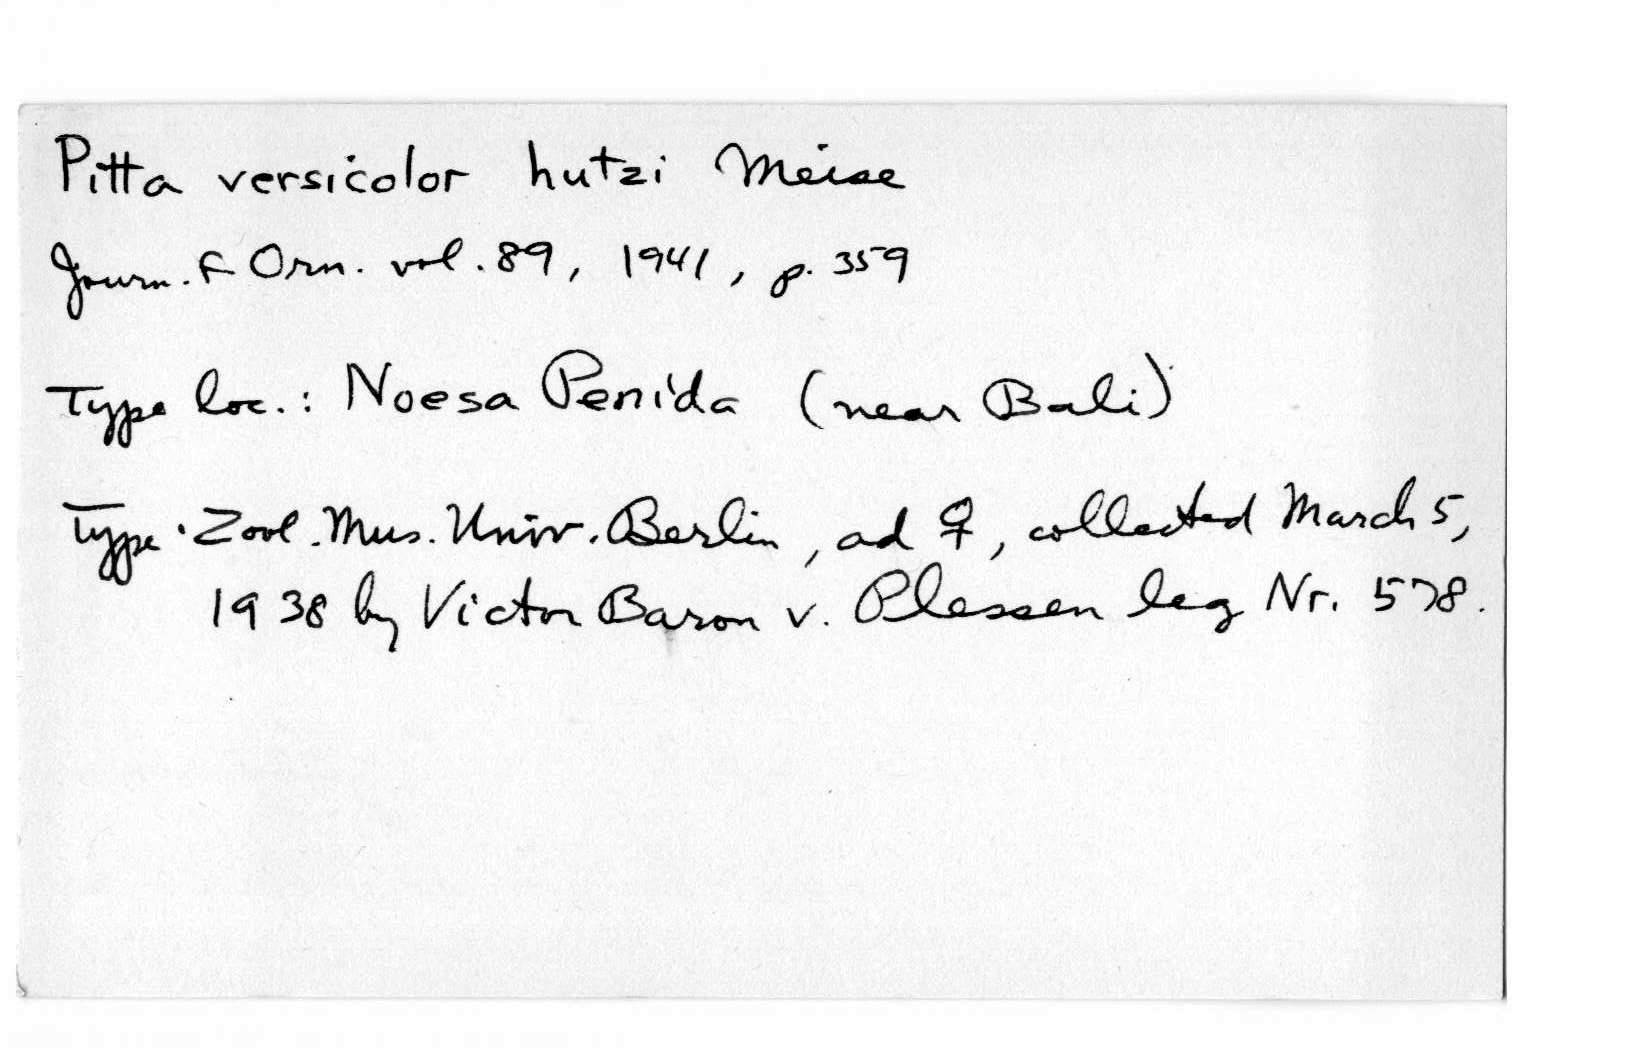 Pitta versicolor hutzi Meise
Journ. f Orn. vol. 89, 1941, p. 359
Type loc.: Noesa Penida (near Bali)
Type. Zool. Mus. Univ. Berlin, ad ♀, collected March 5,
1938 by Victor Baron v. Plessen leg Nr. 578.